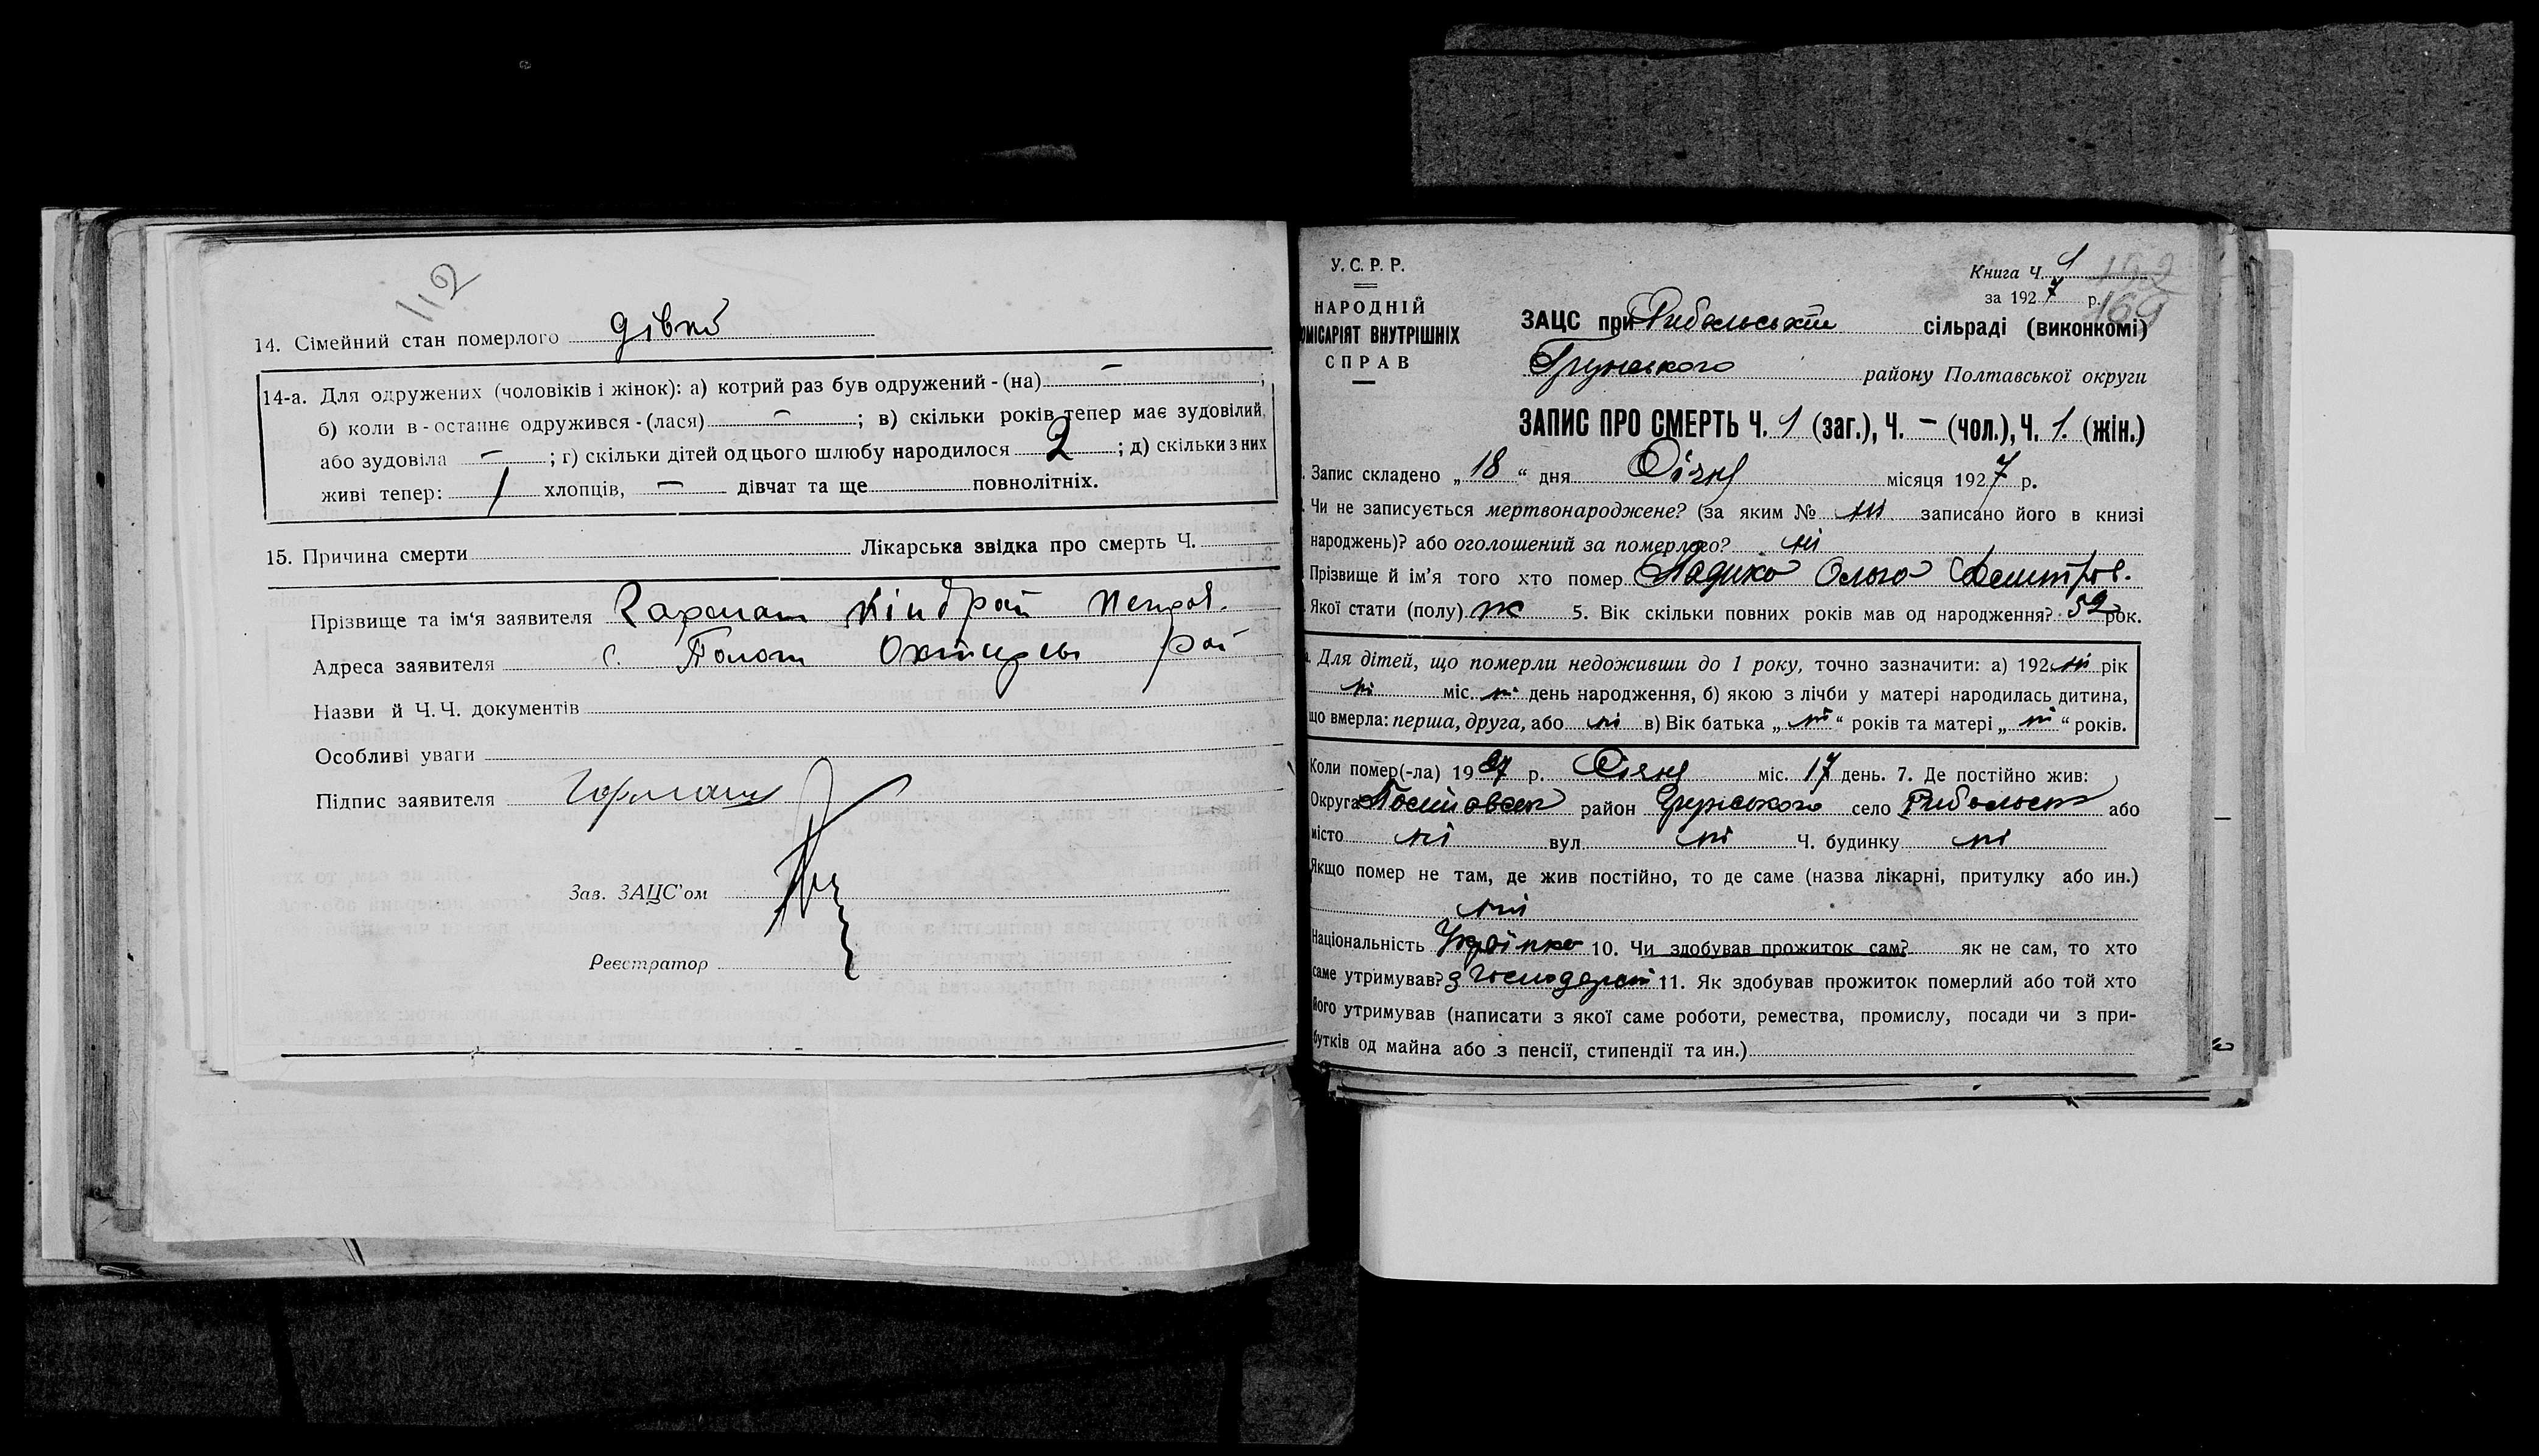 112
14. Сімейний стан померлого
14-а. Для одружених (чоловіків і жінок): а) котрий раз був одружений - (на) — ;
б) коли в - останнє одружився - (лася) — ; в) скільки років тепер має зудовілий,
або зудовіла — ; г) скільки дітей од цього шлюбу народилося 2 ; д) скільки з них
живі тепер: 1 хлопців, — дівчат та ще повнолітніх.
15. Причина смерти Лікарська звідка про смерть Ч.
Прізвище та ім'я заявителя Кіндрат Петров.
Адреса заявителя с. рай
Назви й Ч. Ч. документів
Особливі уваги
Підпис заявителя
Зав. ЗАЦС'ом
Реєстратор
У. С. Р. Р.
НАРОДНІЙ
ОМІСАРІЯТ ВНУТРІШНІХ
СПРАВ
Книга Ч. 1
за 1927 р.
169
ЗАЦС при Рибальській сільраді (виконкомі)
Грунського району Полтавської округи
ЗАПИС ПРО СМЕРТЬ Ч. 1 (заг.), Ч. — (чол.), Ч. 1. (жін.)
Запис складено „ 18 “ дня Січня місяця 1927 р.
Чи не записується мертвонароджене? (за яким № ні записано його в книзі
народжень)? або оголошений за померлого? ні
Прізвище й ім'я того хто помер Ольга Дмитров.
Якої стати (полу) ж 5. Вік скільки повних років мав од народження? 52 рок.
Для дітей, що померли недоживши до 1 року, точно зазначити: а) 192 ні рік
ні міс. ні день народження, б) якою з лічби у матері народилась дитина,
що вмерла: перша, друга, або ні в) Вік батька „ ні “ років та матері „ ні “ років.
Коли помер(-ла) 1927 р. Січня міс. 17 день. 7. Де постійно жив:
Округа Полтавськ район Грунського село Рибальськ або
місто ні вул ні Ч. будинку ні
Якщо помер не там, де жив постійно, то де саме (назва лікарні, притулку або ин.)
ні
Національність Українка 10. Чи здобував прожиток сам? як не сам, то хто
саме утримував? з господарст 11. Як здобував прожиток померлий або той хто
його утримував (написати з якої саме роботи, ремества, промислу, посади чи з при-
бутків од майна або з пенсії, стипендії та ин.)